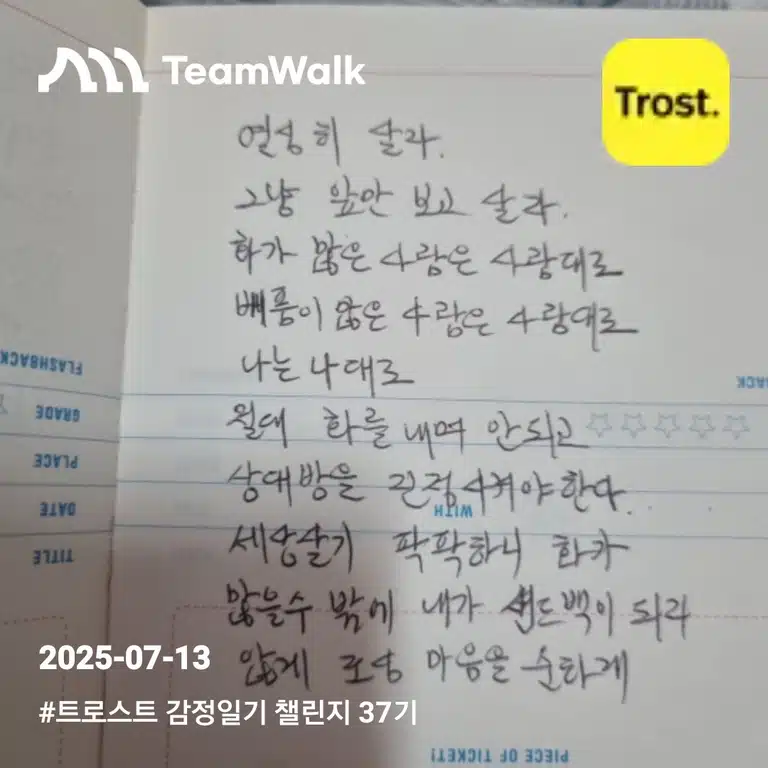 TeamWalk
Trost.
열심히 살라.
그냥 앞만 보고 살라.
화가 많은 사람은 사람대로
베품이 않은 사람은 사람대로
나는 나대로
월대 화를 내며 안되고
상대방을 진정시켜야한다.
세상살기 팍팍하니 화가
많을수 밖에 내가 샌드백이 되라
않게 조심 마음을 순하게
FLASHBACK
GRADE
PLACE
DATE
TITLE
WITH
PIECE OF TICKET!
2025-07-13
#트로스트 감정일기 챌린지 37기